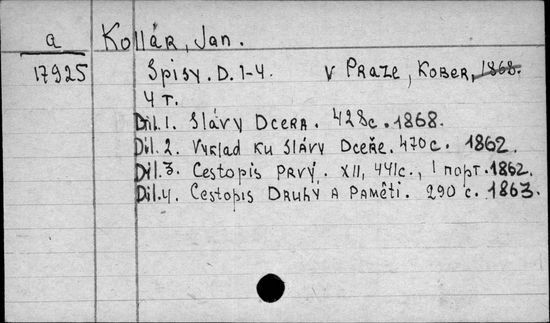 a Kollár, Jan.
17925 Spisy. D. 1-4. V Praze, Kober, 1868.
4 т.
Díl. 1. Slávy Dcera. 428с. 1868.
Díl. 2. Výklad ku Slávy Dceře. 470с. 1862.
Díl. 3. Cestopis prvý. XII, 441с., 1 порт. 1862.
Díl. 4. Cestopis Druhý a Paměti. 290 с. 1863.